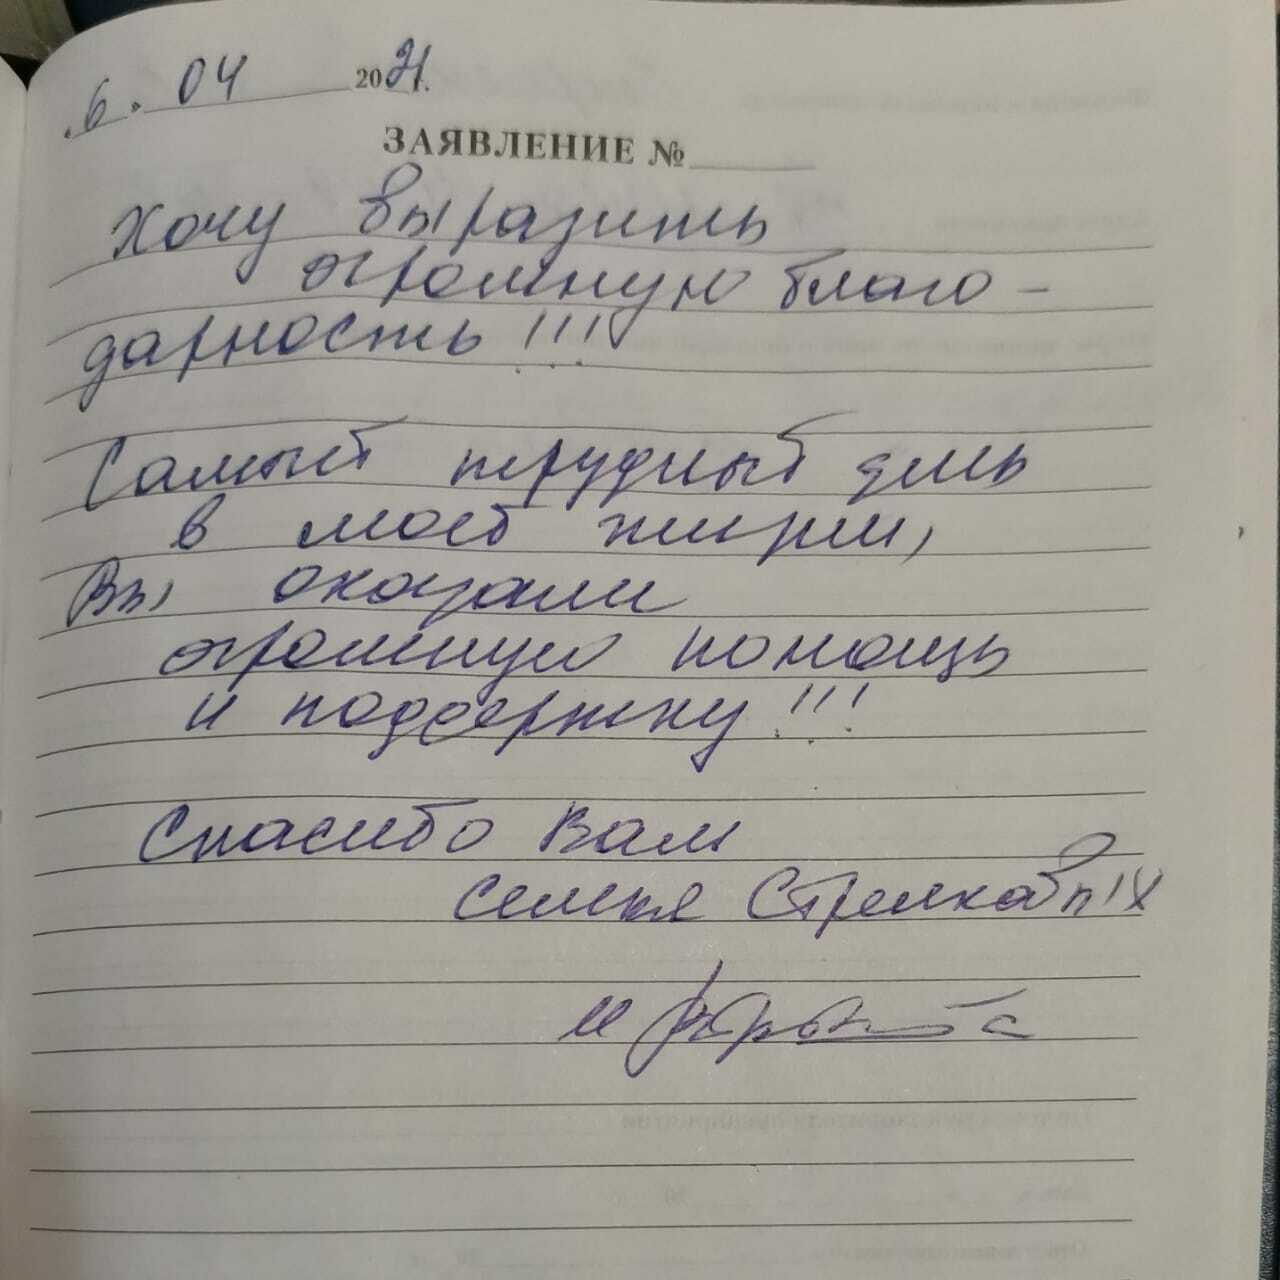 6. 04 2021г.
ЗАЯВЛЕНИЕ №
Хочу выразить
огромную благо-
дарность!!!
Самый трудный день
в моей жизни,
Вы оказали
огромную помощь
и поддержку!!!
Спасибо Вам
семья Стрелковых
и